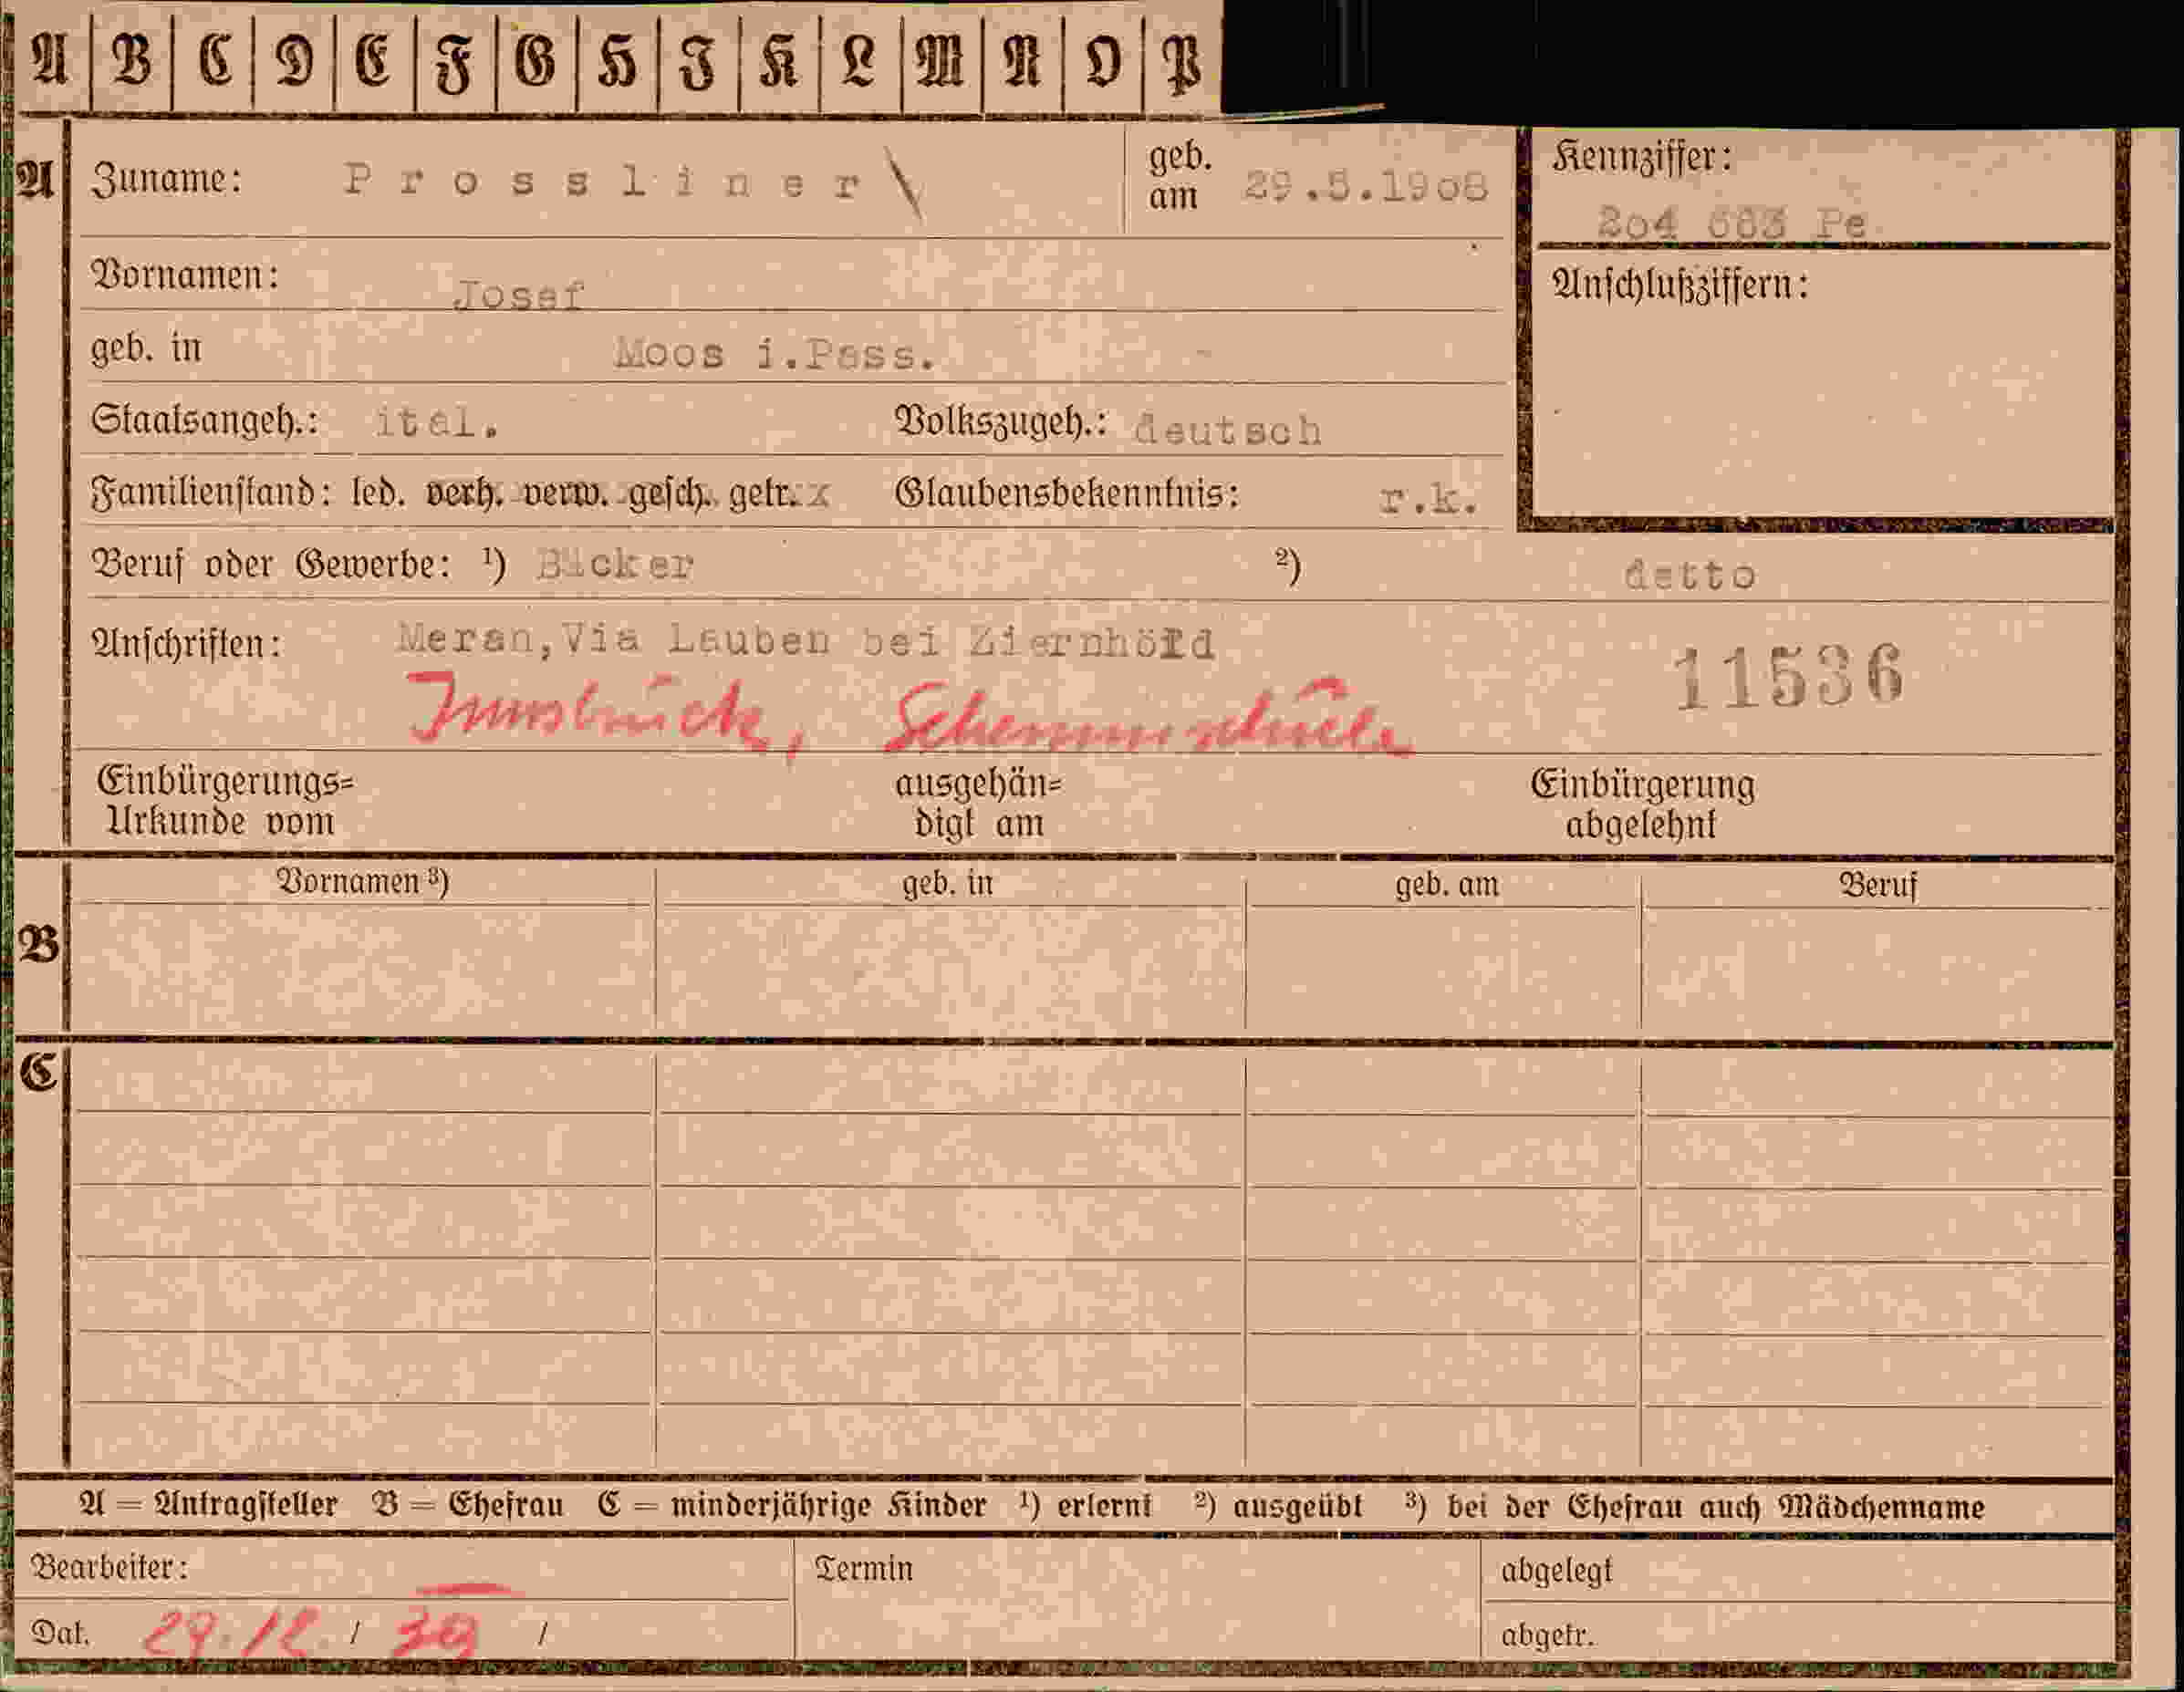 A B C D E F G H I K L M N O P
A Zuname: Prossliner \ geb. am 29.5.1908 Kennziffer: 204 683 Pe
Vornamen: Josef Anschlußziffern:
geb. in Moos i.Pass.
Staatsangeh.: ital. Volkszugeh.: deutsch
Familienstand: led. verh. verw. gesch. getr. x Glaubensbekenntnis: r.k.
Beruf oder Gewerbe: ¹) Bäcker ²) detto
Anschriften: Meran,Via Lauben bei
Innsbruck, 11536
Einbürgerungs= ausgehän= Einbürgerung
Urkunde vom digt am abgelehnt
Vornamen ³) geb. in geb. am Beruf
B
C
A = Antragsteller B = Ehefrau C = minderjährige Kinder ¹) erlernt ²) ausgeübt ³) bei der Ehefrau auch Mädchenname
Bearbeiter: Termin abgelegt
Dat. 29.12. / 39 / abgetr.